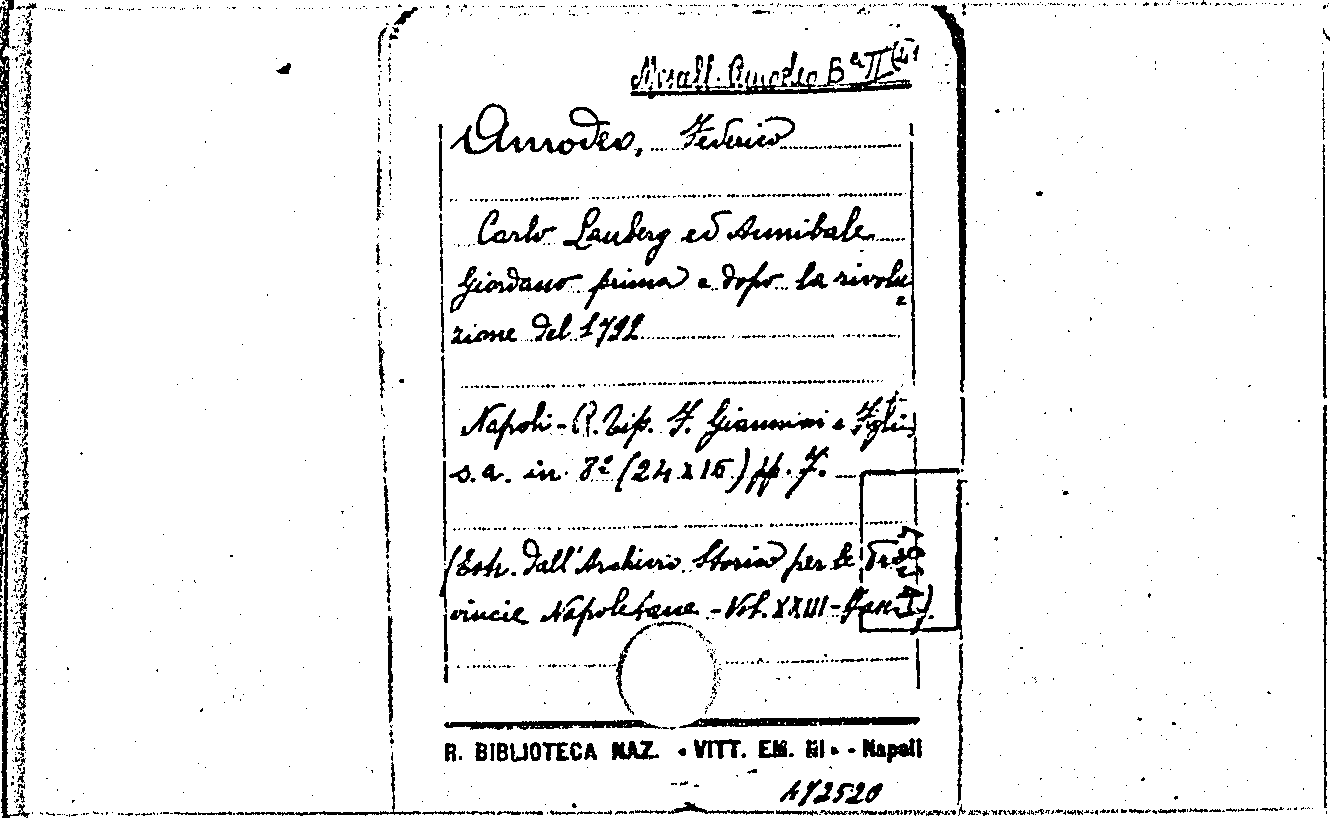 Misall. Amodeo Bª II
Amodeo, Federico
Carlo Lauberg ed Annibale
Giordano prima e dopo la rivolu
zione del 1792
Napoli - R. Tip. F. Giannini e Figli
s.a. in 8º (24 x 16) pp. 7.
(Estr. dall'Archivio Storico per le Pro
vincie Napoletane - Vol. XXIII - Fasc. I).
R. BIBLIOTECA NAZ. « VITT. EM. III » - Napoli
472520